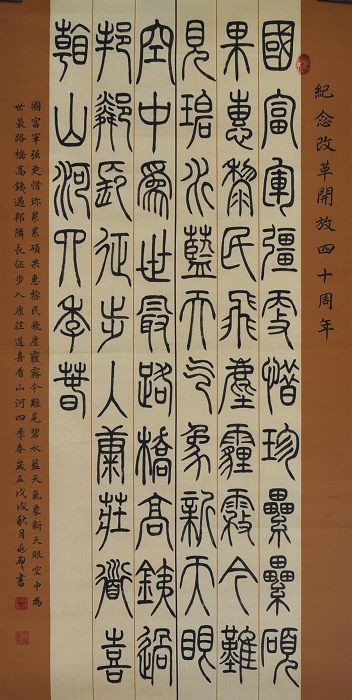 紀念改革開放四十周年
國富軍彊更惜珍纍纍碩
果惠黎民飛塵霾霧今難
見碧水藍天气象新天眼
空中為世最路橋高鐵過
邦鄰長征步入康莊道喜
看山河四季春
國富軍强更惜珍累累碩果惠黎民飛塵霾霧今難見碧水藍天氣象新天眼空中為
世最路橋高鐵過邦隣長征步入康莊道喜看山河四季春歲在戊戌秋月書